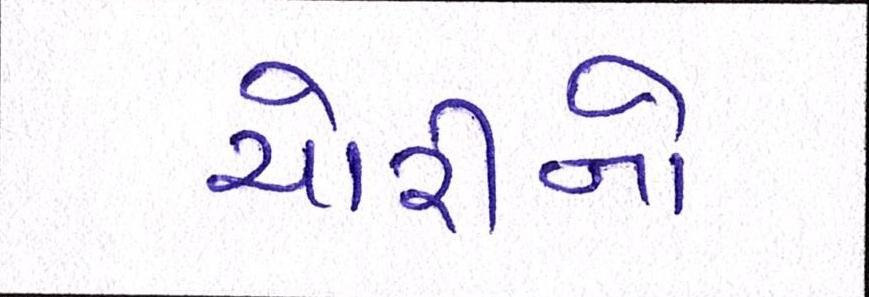 ચોરીનો